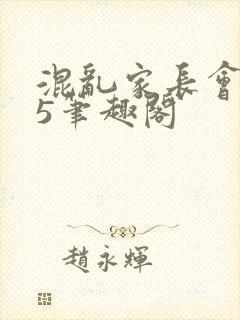 混亂家長會
5筆趣閣
趙永輝